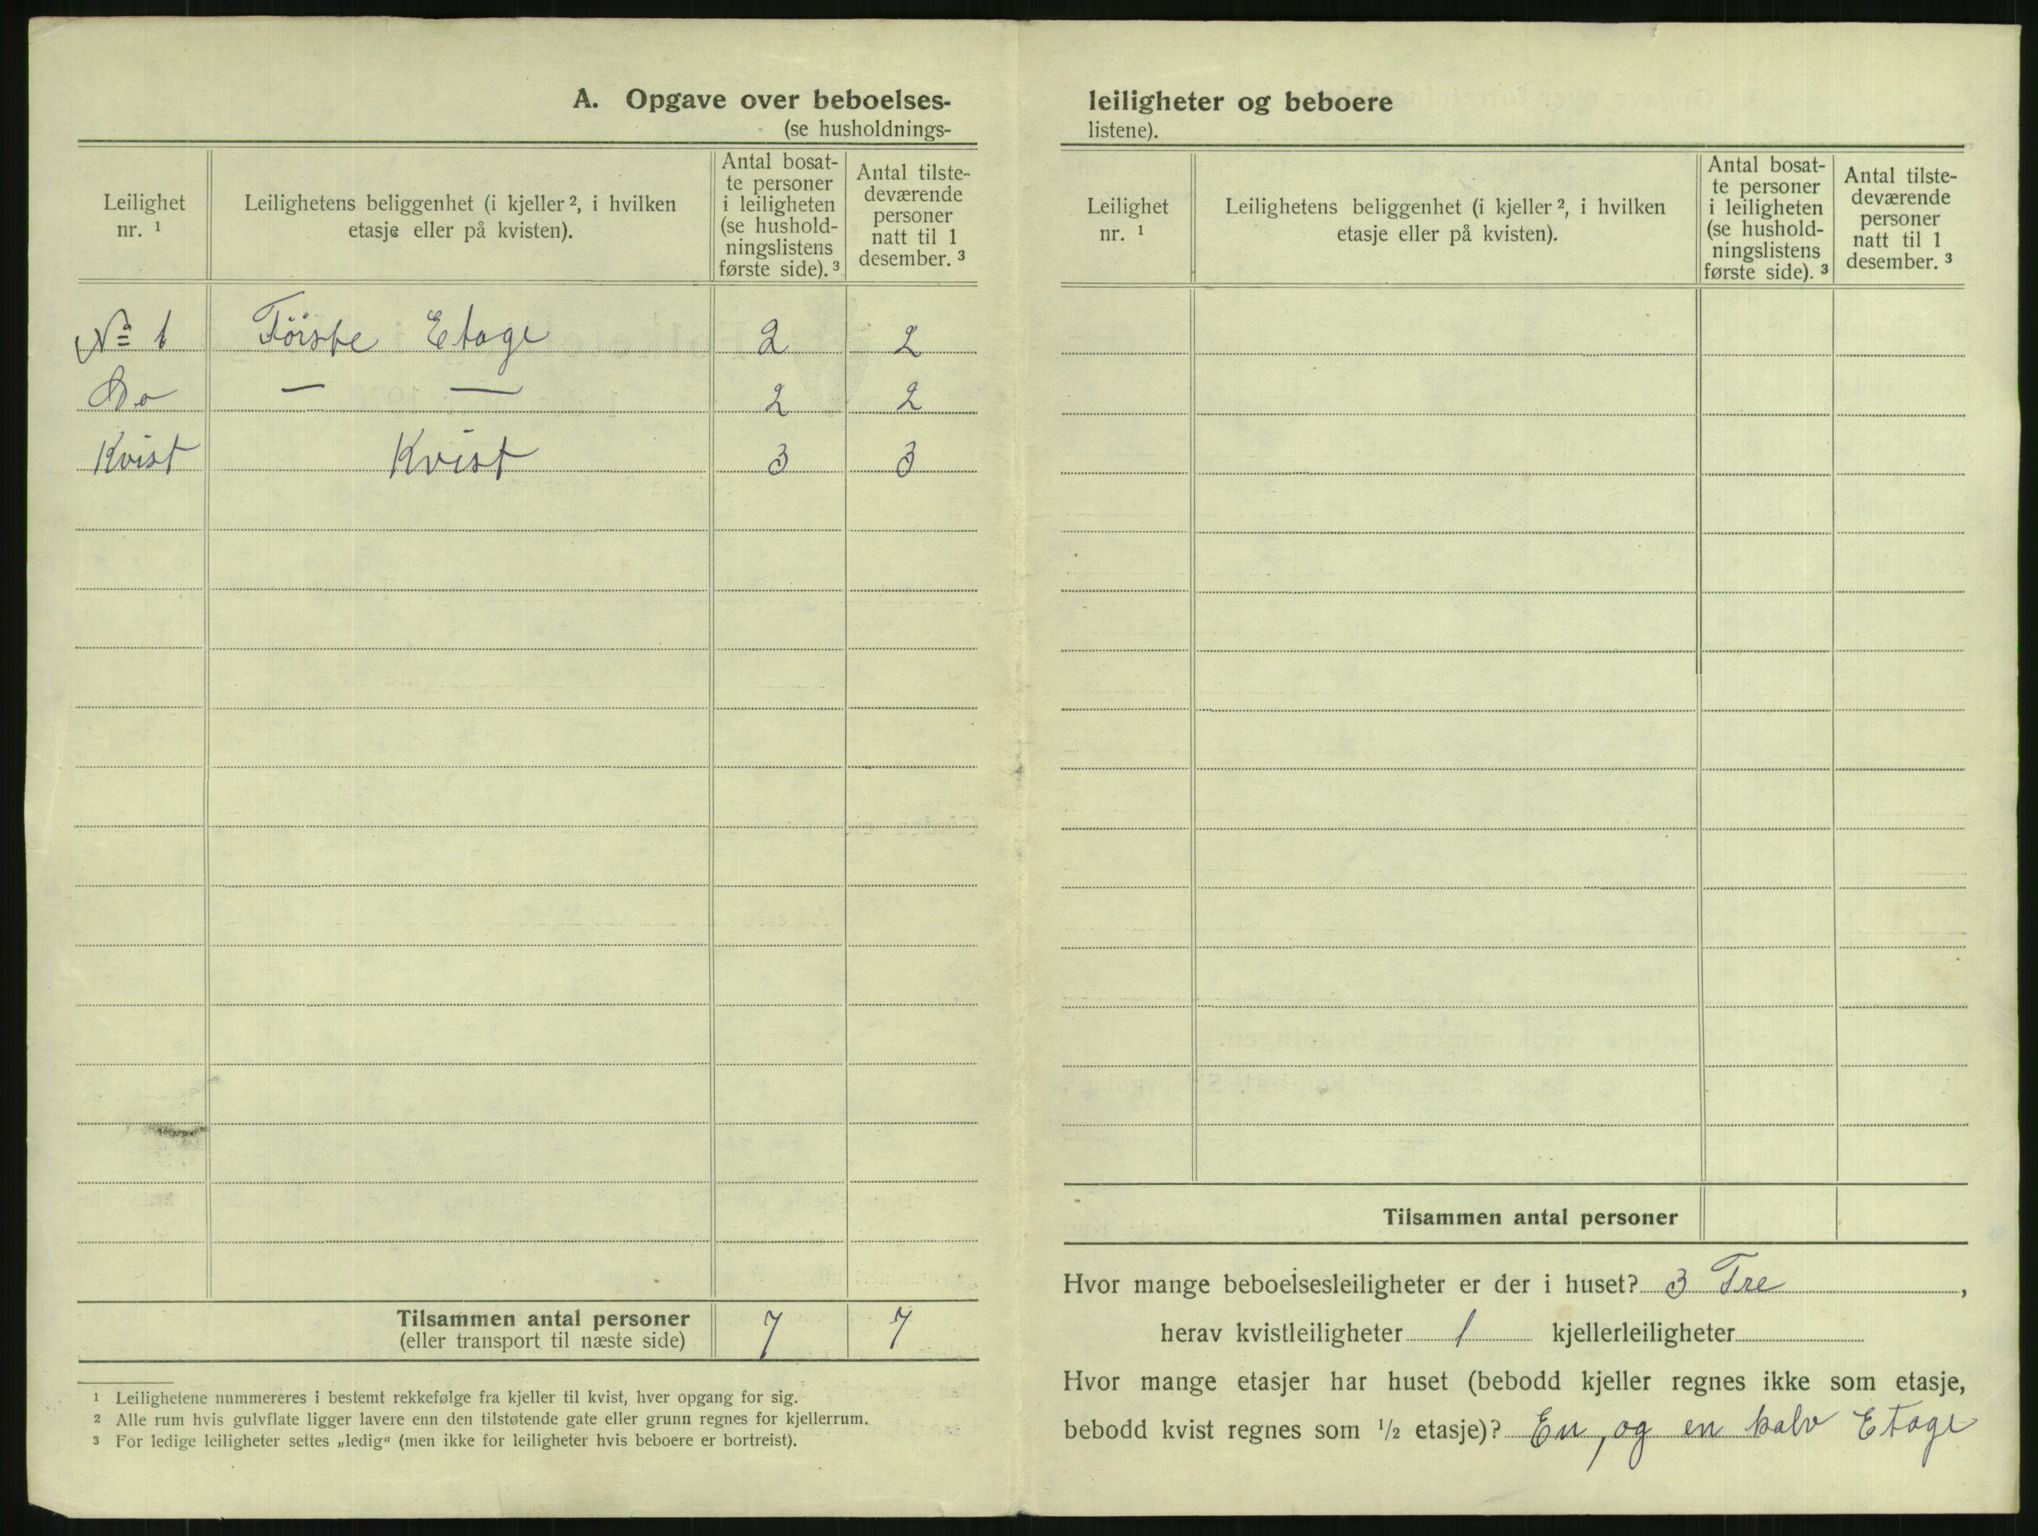 A. Opgave over beboelses-
(se husholdnings-
Leilighet nr. ¹
Leilighetens beliggenhet (i kjeller ², i hvilken etasje eller på kvisten).
Antal bosat-
te personer
i leiligheten
(se hushold-
ningslistens
første side). ³
Antal tilste-
deværende
personer
natt til 1
desember. ³
No 1 Första Etage 2 2
Do — — 2 2
Kvist Kvist 3 3
Tilsammen antal personer 7 7
(eller transport til næste side)
¹ Leilighetene nummereres i bestemt rekkefølge fra kjeller til kvist, hver opgang for sig.
² Alle rum hvis gulvflate ligger lavere enn den tilstøtende gate eller grunn regnes for kjellerrum.
³ For ledige leiligheter settes „ledig“ (men ikke for leiligheter hvis beboere er bortreist).
leiligheter og beboere
listene).
Leilighet nr. ¹
Leilighetens beliggenhet (i kjeller ², i hvilken etasje eller på kvisten).
Antal bosat-
te personer
i leiligheten
(se hushold-
ningslistens
første side). ³
Antal tilste-
deværende
personer
natt til 1
desember. ³
Tilsammen antal personer
Hvor mange beboelsesleiligheter er der i huset? 3 Tre,
herav kvistleiligheter 1 kjellerleiligheter
Hvor mange etasjer har huset (bebodd kjeller regnes ikke som etasje,
bebodd kvist regnes som ½ etasje)? En, og en halv Etage